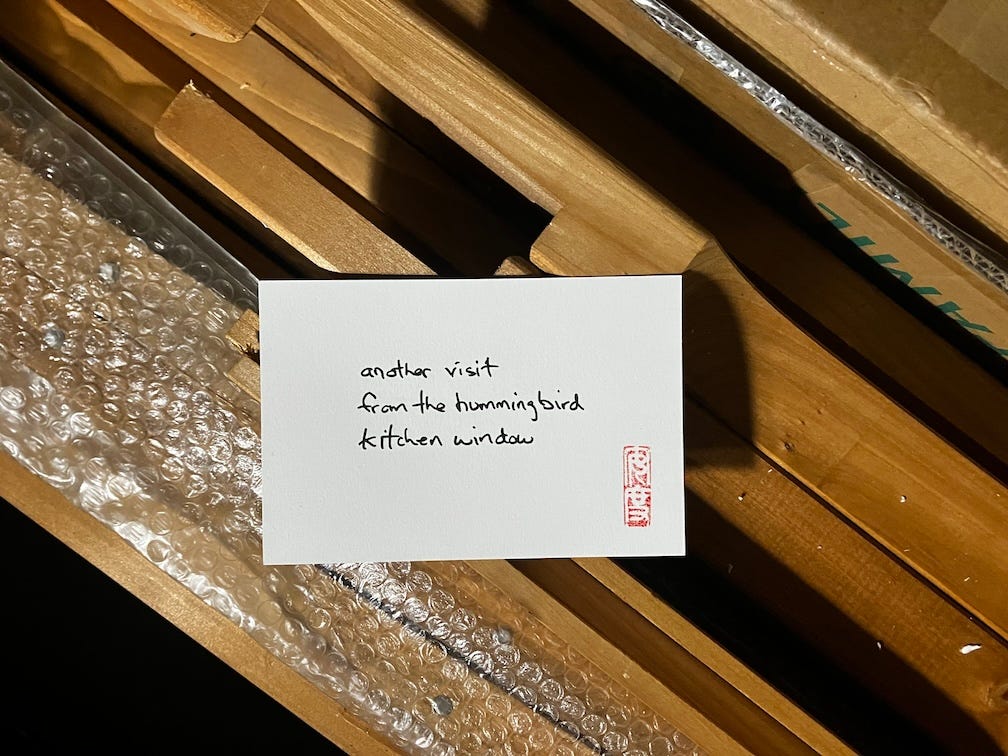 another visit
from the hummingbird
kitchen window